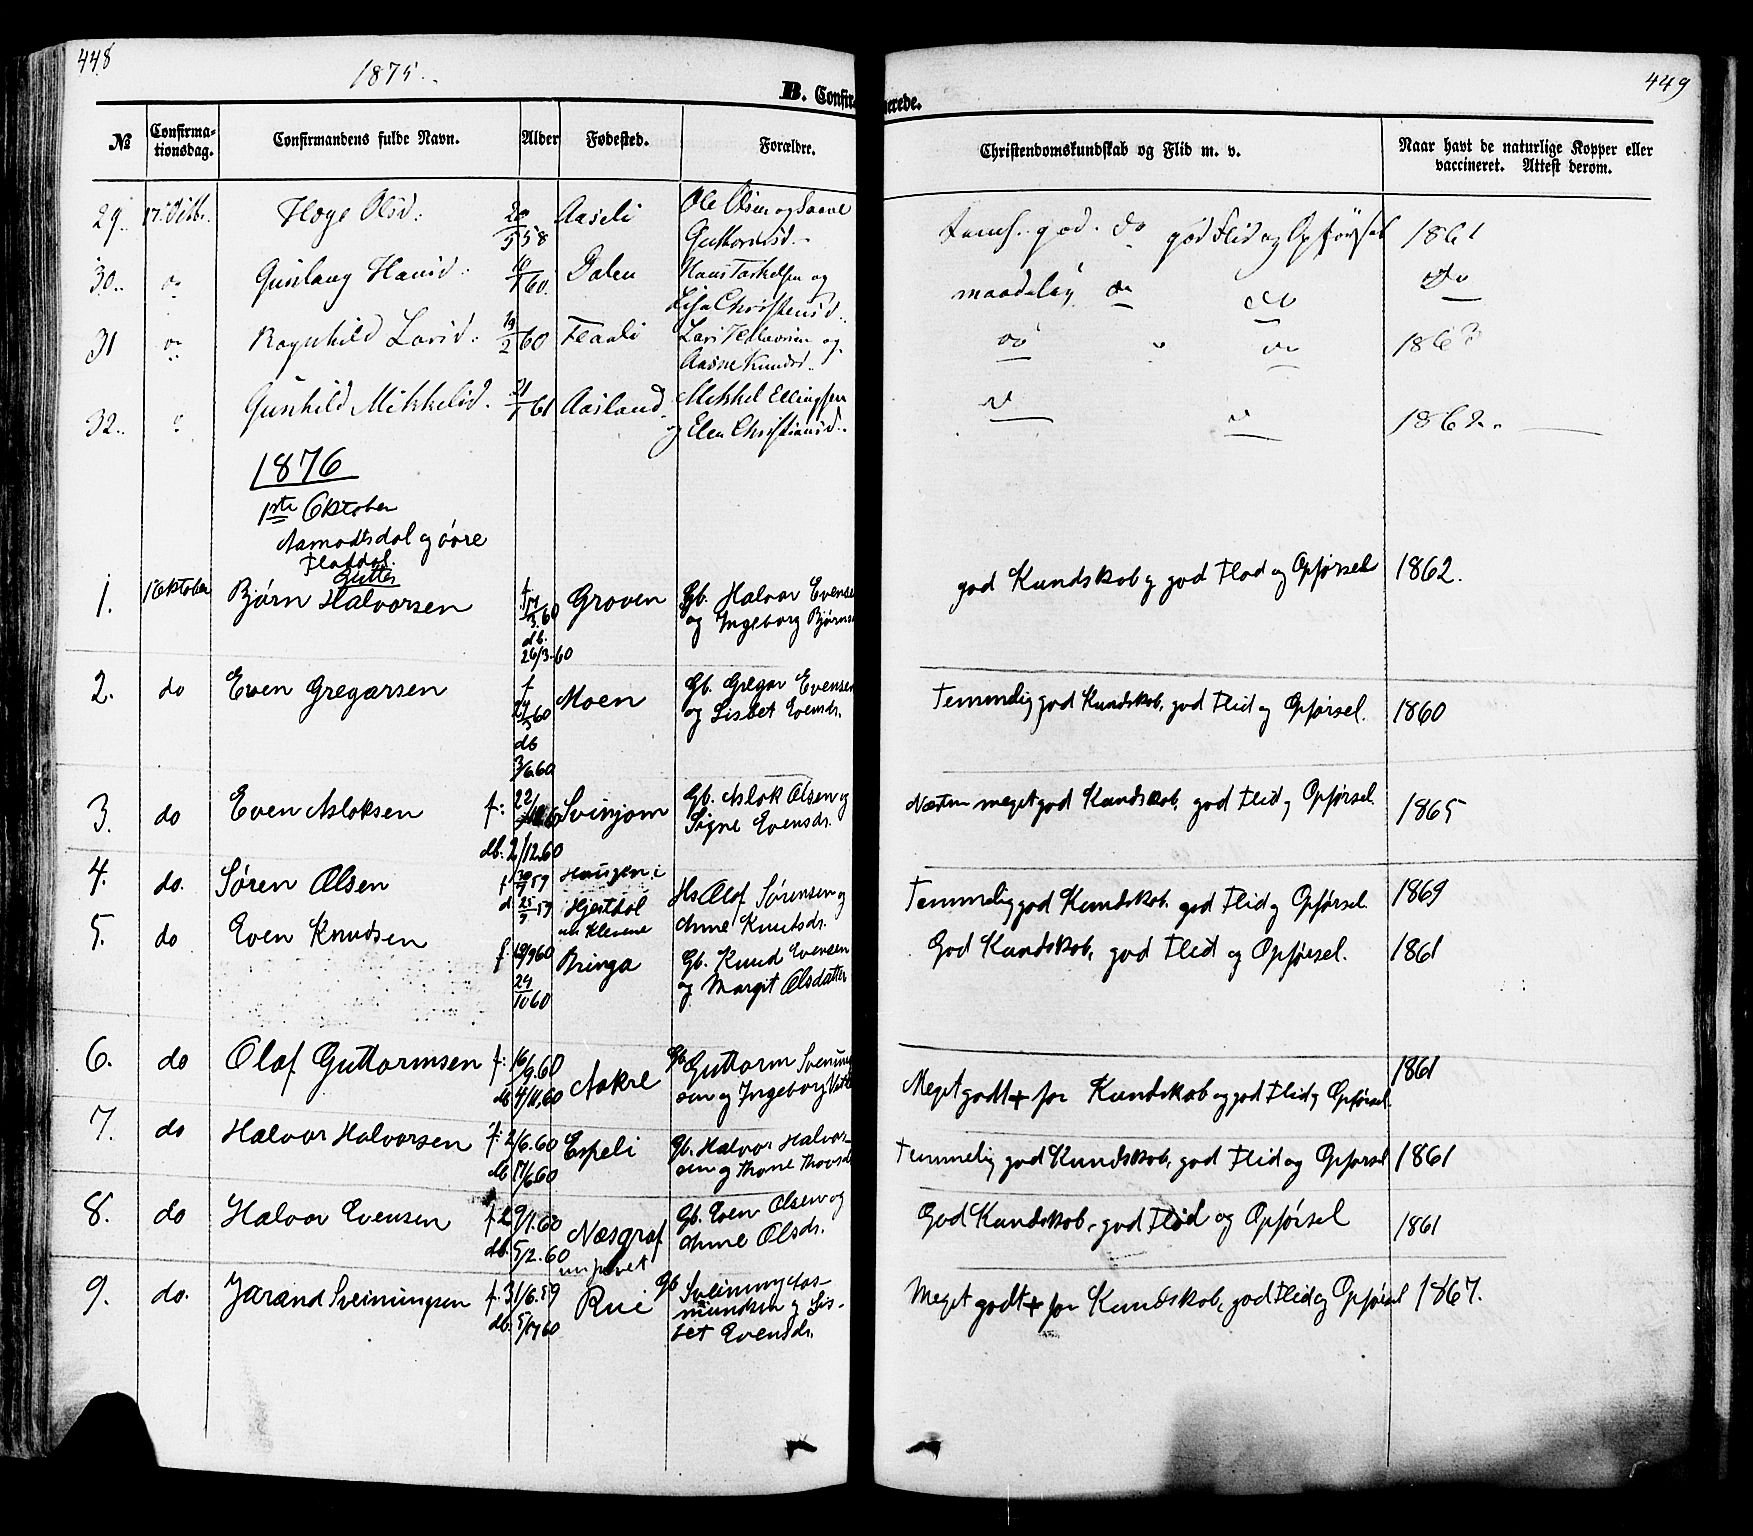 448
1875.
B. Confirmerede.
449
№ Confirmationsdag. Confirmandens fulde Navn. Alder Fødested. Forældre. Christendomskundskab og Flid m. v. Naar havt de naturlige Kopper eller vaccineret. Attest derom.
29. 17. Oktbr. Hæge Olsd. 20/5 58 Aaseli Ole Olsen og
Guttormsd. god Flid og Opførsel 1861
30. Gunlaug Hansd. 60. Dalen Hans Tarkelsen og
Lisa Christensd. maadelig do do Do
31 do Ragnhild Larsd. 19/2 60 Flaali Lars Tellevsen og
Aasne Knudsd. do do 1863
32. Gunhild Mikkelsd. 61 Aasland Mikkel Ellingsen
og Elen Christiansd. 1862.
1876
1ste Oktober
Aamodtsdal og øvre
Flatdal.
Gutter
1. 1 Oktober Bjørn Halvorsen f 60 Groven Gb. Halvor Evensen
db. 26/3.60 og Ingeborg Bjørnsd
god Kundskab og god Flid og Opførsel 1862.
2. do Even Gregarsen f 60 Moen Gb. Gregar Evensen
og Lisbet Evensdr.
db 3/6.60
Temmelig god Kundskab, god Flid og Opførsel. 1860
3. do Even Asloksen f: 22/ Svinjom Gb. Aslok Olsen og
db: 2/12.60 Signe Evensdr.
Næsten meget god Kundskab, god Flid og Opførsel. 1865
4. do. Søren Olsen f 59 Haugen i
d. 25 59 Hjertdal Hs Olaf Sørensen og
Klevene Anne Knutsdr.
Temmelig god Kundskab, god Flid og Opførsel. 1869
5. do Even Knudsen f. 19/9 60 Bringa Gb. Knud Evensen
29/10 60 og Margit Olsdatter
God Kundskab, god Flid og Opførsel. 1861
6. do Olaf Guttormsen f: 16/9.60 Aakre Gb. Guttorm Sveinung
db 4/11.60 sen og Ingeborg
Meget godt + for Kundskab og god Flid og Opførsel. 1861
7. do Halvor Halvorsen f: 2/6.60 Espeli Gb. Halvor Halvor-
db 17/6.60 sen og Thone Thovsd
Temmelig god Kundskab, god Flid og Opførsel 1861
8. do Halvor Evensen f 29/1.60 Næsgraf Gb. Even Olsen og
db. 5/2.60 Anne Olsdr.
God Kundskab, god Flid og Opførsel 1861
9. do. Jørand Sveinungsen f. 31/6.59 Rui Gb Sveinung Aas-
db: 5/ 60 mundsen og Lis-
bet Evensdr.
Meget godt + for Kundskab, god Flid og Opførsel 1867.